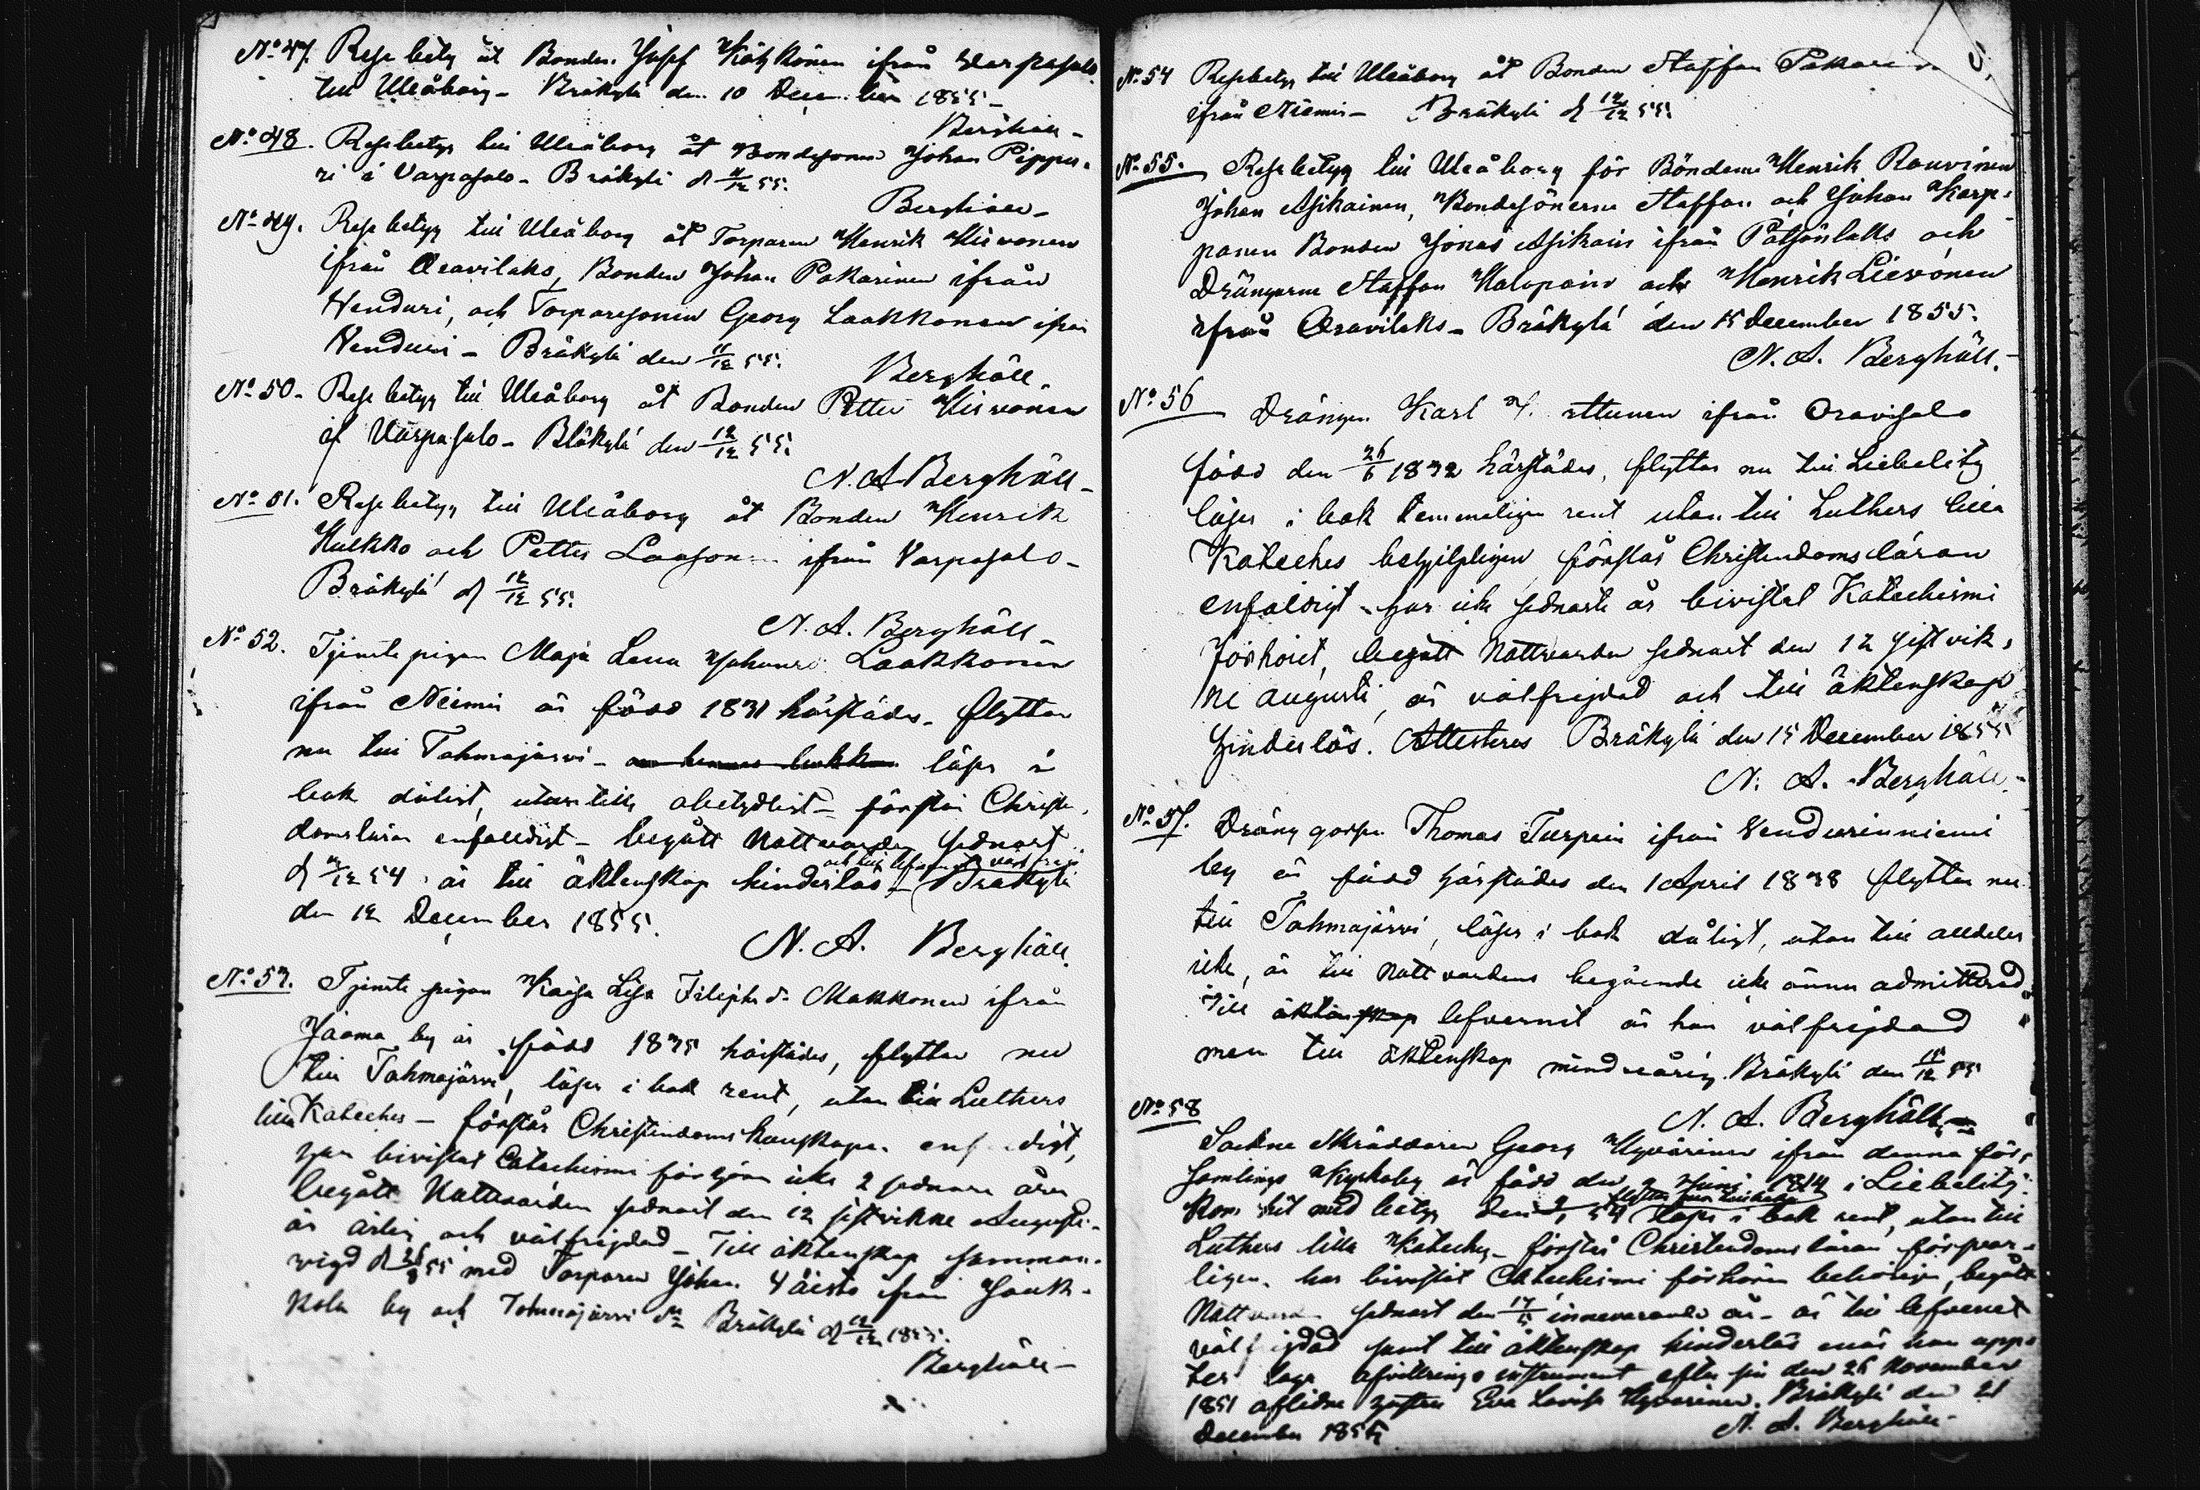 No 47. Rese betyg åt Bonden Josef Kätkönen ifrån Varpasalo
till Uleåborg – Bräkylä den 10 December 1855 –
Berghäll –
No 48. Resebetyg till Uleåborg åt Bondesonen Johan Pippu-
ri i Varpasalo – Bräkylä d 11/12 55.
Berghäll –
No 49. Rese betyg till Uleåborg åt Torparen Henrik Hirvonen
ifrån Oravilaks, Bonden Johan Pakarinen ifrån
Venduri, och Torparesonen Georg Laakkonen ifrån
Venduri – Bräkylä den 11/12 55.
Berghäll.
No 50 – Rese betyg till Uleåborg åt Bonden Petter Hirvonen
af Varpasalo – Bräkylä den 12/12 55.
N. A. Berghäll –
No 51. Rese betyg till Uleåborg åt Bonden Henrik
Hukko och Petter ifrån Varpasalo –
Bräkylä d 12/12 55.
N. A. Berghäll –
No 52. Tjenste pigan Maja Lena Laakkonen
ifrån Niemis är född 1831 härstädes – flyttar
nu till Tohmajärvi – läser i
bok dåligt, utantill obetydligt – förstår Christen
domsläran enfaldigt – begått Nattvarden sednast
d 12 54 är till äktenskap hinderlös – Bräkylä
den 12 December 1855.
N. A. Berghäll.
No 53. Tjenste pigan Kaisa Lisa Filipsd:r Makkonen ifrån
Jaama by är född 1835 härstädes, flyttar nu
till Tohmajärvi, läser i bok rent, utan till Luthers
lilla Kateches – förstår Christendoms kunskapen
har bivistat Catechismi förhören icke 2 sednare åren
begått Nattvarden sednast den 12 sistvikne Augusti –
är ärlig och välfrejdad – Till äktenskap samman-
vigd d 26/8 55 med Torparen Johan ifrån
by och Tohmajärvi Bräkylä d 12/12 1855.
Berghäll –
No 54 Resebetyg till Uleåborg åt Bonden Staffan
ifrån Niemis – Bräkylä d 12/12 55.
No 55. Rese betyg till Uleåborg för Bönderne Henrik Rouvinen
Johan Asikainen, Bondesönerne Staffan och Johan Karp-
panen Bonden Jonas Asikain ifrån Potsönlaks och
Drängarne Staffan Halopain och Henrik Lievonen
ifrån Oravilaks – Bräkylä den 15 December 1855.
N. A. Berghäll. –
No 56 Drängen Karl ifrån Oravisalo
född den 26/6 1832 härstädes, flyttar nu till Liebelitz
läser i bok temmeligen rent utan till Luthers lilla
Kateches behjelpligen förstår Christendomsläran
enfaldigt – har icke sednaste år bivistat Katechismi
förhöret, begått Nattvarden sednast den 12 sistvik-
ne augusti, är välfrejdad och till äktenskap
hinderlös. Attesteras Bräkylä den 15 December 1855
N. A. Berghäll –
No 57. Dräng gossen Thomas Turpein ifrån Vendurinniemi
by är född härstädes den 1 April 1838 flyttar nu
till Tohmajärvi, läser i bok dåligt, utan till alldeles
icke, är till Nattvardens begående icke ännu admitterad
Till äktenskap lefvernet är han välfrejdad
men till äktenskap minderårig. Bräkylä den 15/12 55
N. A. Berghäll. –
No 58
Sockne Skräddaren Georg Hyvärinen ifrån denna för-
samlings Kyrkoby är född den 2 Juni 1814 i Liebelitz
kom hit med betyg den läser i bok rent, utan till
Luthers lilla Kateches – förstår Christendomsläran försvar-
ligen. har bivistat Catechismi förhören behörigen, begått
sednast den innevarande år – är till lefvernet
samt till äktenskap hinderlös enär han upp-
ter laga afvittrings instrument efter sin den 26 November
1851 aflidne hustru Eva Lovisa Hyvärinen. Bräkylä den 21
December 1855
N. A. Berghäll –